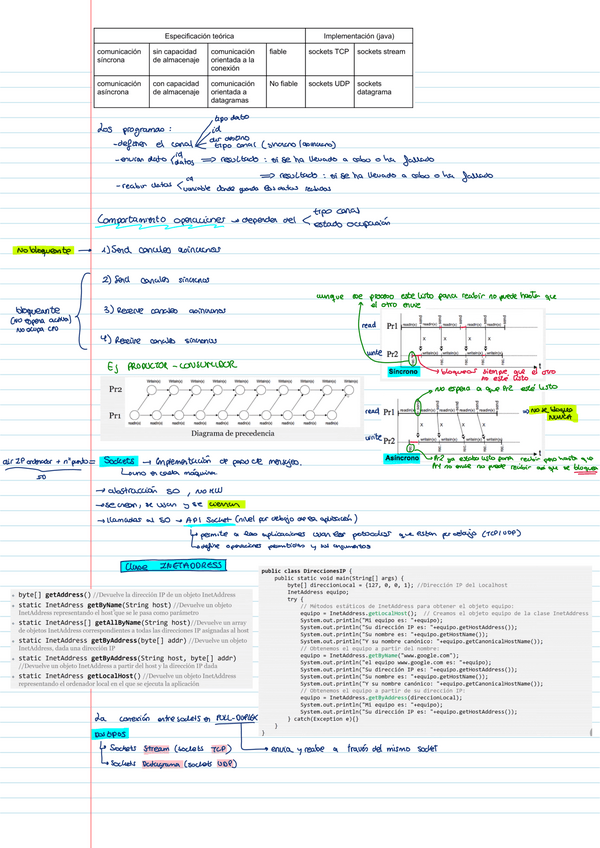 Especificación teórica Implementación (java)
comunicación síncrona sin capacidad de almacenaje comunicación orientada a la conexión fiable sockets TCP sockets stream
comunicación asíncrona con capacidad de almacenaje comunicación orientada a datagramas No fiable sockets UDP sockets datagrama
Los programas:
tipo dato
id
-definen el canal
tipo canal (síncrono/asíncrono)
-envían dato id datos => resultado: si se ha llevado a cabo o ha fallado
=> resultado: si se ha llevado a cabo o ha fallado
-reciben datos id
variable donde guarda los datos recibidos
Comportamiento operaciones → dependen del
tipo canal
estado ocupación
No bloqueante → 1) Send canales asíncronos
2) Send canales síncronos
bloqueante
(no espera activa)
No ocupa CPU
3) Receive canales asíncronos
4) Receive canales síncronos
aunque ese proceso este listo para recibir no puede hasta que
el otro envie
read Pr1
write Pr2
Síncrono
bloquean siempre que el otro
no este listo
Ej PRODUCTOR-CONSUMIDOR
Pr2
Pr1
Diagrama de precedencia
No espera a que Pr2 esté listo
read Pr1
NO SE BLOQUEA
NUNCA
write Pr2
Asíncrono
Pr2 ya estaba listo para recibir pero hasta que
Pr1 no envíe no puede recibir así que se bloquea
dir IP ordenador + nº puerto = Sockets → Implementación de paso de mensajes.
SO
uno en cada máquina
→ abstracción SO, no HW
→ se crean, se usan y se cierran
→ llamadas al SO → API Socket (nivel por debajo de la aplicación)
permite a las aplicaciones usar los protocolos que estan por debajo (TCP/UDP)
define operaciones permitidas y sus argumentos
Clase INETADDRESS
byte[] getAddress() //Devuelve la dirección IP de un objeto InetAddress
static InetAddress getByName(String host) //Devuelve un objeto
InetAddress representando el host que se le pasa como parámetro
static InetAddress[] getAllByName(String host)//Devuelve un array
de objetos InetAddress correspondientes a todas las direcciones IP asignadas al host
static InetAddress getByAddress(byte[] addr) //Devuelve un objeto
InetAddress, dada una dirección IP
static InetAddress getByAddress(String host, byte[] addr)
//Devuelve un objeto InetAddress a partir del host y la dirección IP dada
static InetAddress getLocalHost() //Devuelve un objeto InetAddress
representando el ordenador local en el que se ejecuta la aplicación
public class DireccionesIP {
public static void main(String[] args) {
byte[] direccionLocal = {127, 0, 0, 1}; //Dirección IP del Localhost
InetAddress equipo;
try {
// Métodos estáticos de InetAddress para obtener el objeto equipo:
equipo = InetAddress.getLocalHost(); // Creamos el objeto equipo de la clase InetAddress
System.out.println("Mi equipo es: "+equipo);
System.out.println("Su dirección IP es: "+equipo.getHostAddress());
System.out.println("Su nombre es: "+equipo.getHostName());
System.out.println("Y su nombre canónico: "+equipo.getCanonicalHostName());
// Obtenemos el equipo a partir del nombre:
equipo = InetAddress.getByName("www.google.com");
System.out.println("el equipo www.google.com es: "+equipo);
System.out.println("Su dirección IP es: "+equipo.getHostAddress());
System.out.println("Su nombre es: "+equipo.getHostName());
System.out.println("Y su nombre canónico: "+equipo.getCanonicalHostName());
// Obtenemos el equipo a partir de su dirección IP:
equipo = InetAddress.getByAddress(direccionLocal);
System.out.println("Mi equipo es: "+equipo);
System.out.println("Su dirección IP es: "+equipo.getHostAddress());
} catch(Exception e){}
}
}
La conexión entre sockets es FULL-DUPLEX
→ envia y recibe a través del mismo socket
Dos tipos
Sockets Stream (sockets TCP)
Sockets Datagrama (sockets UDP)